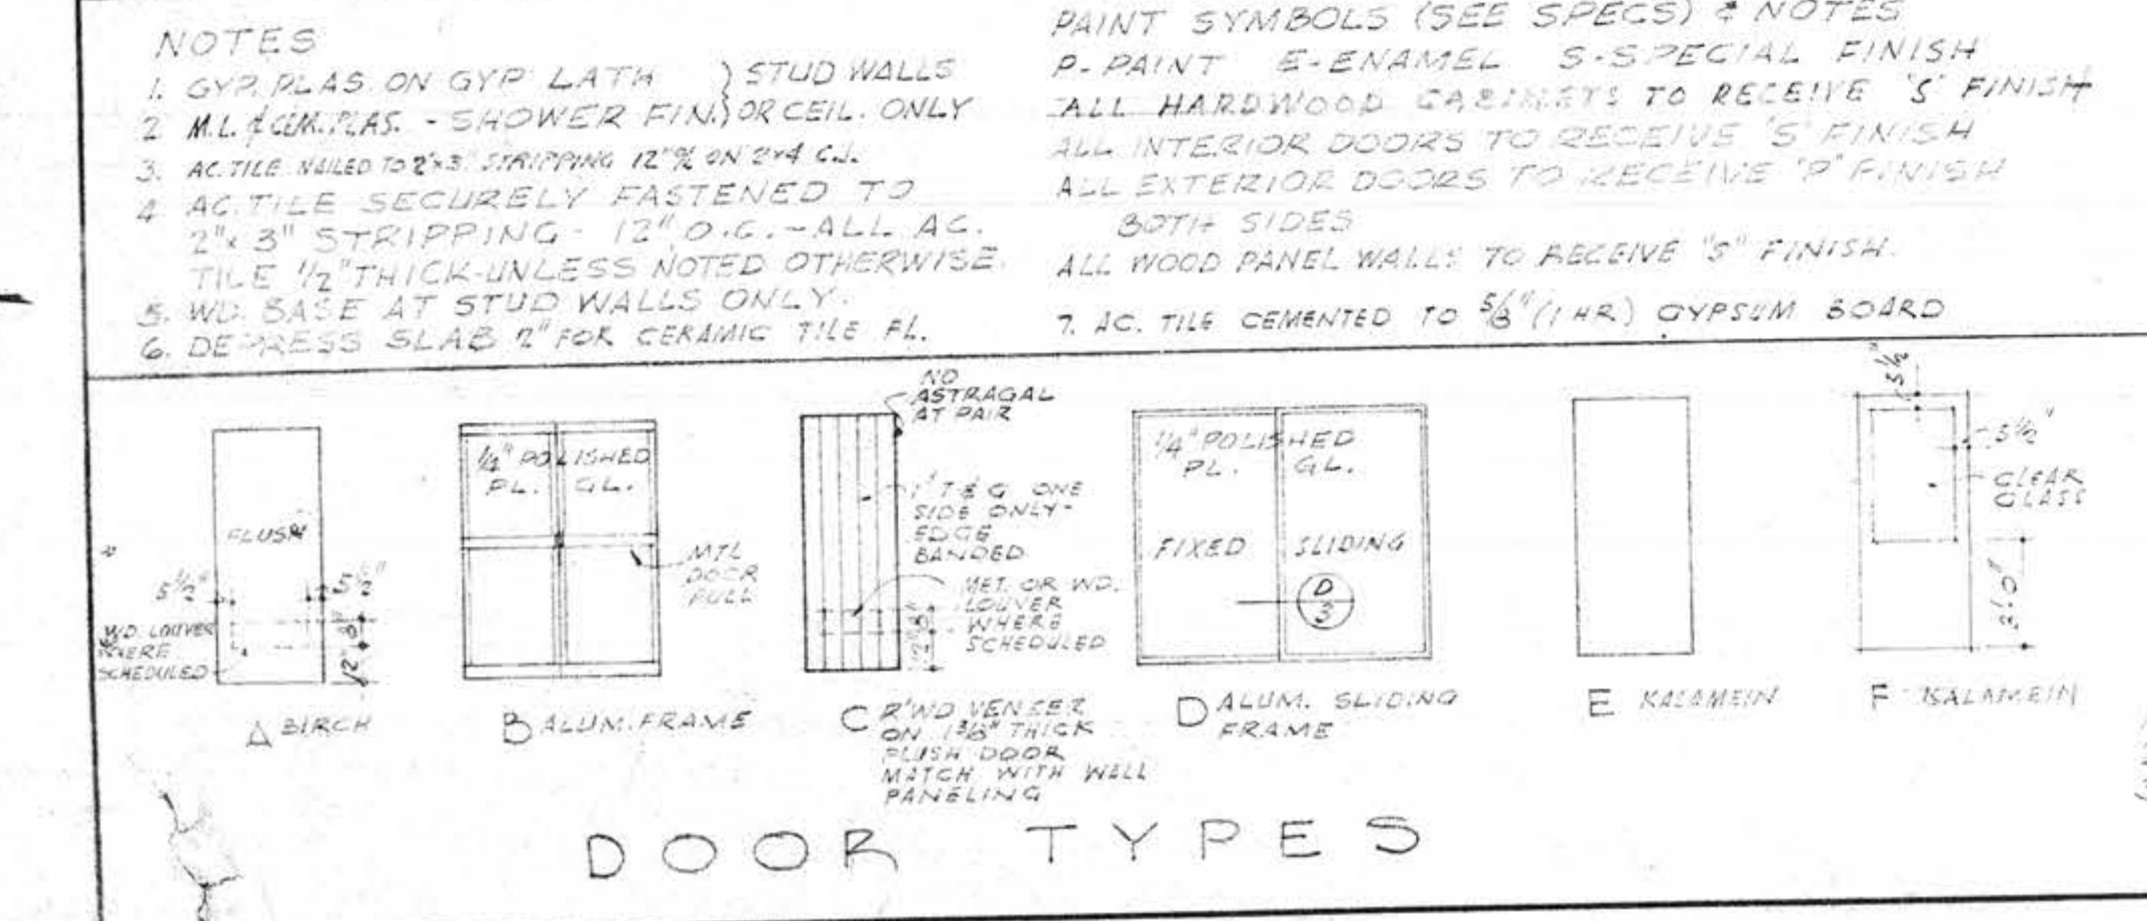 NOTES
1. GYP. PLAS. ON GYP LATH } STUD WALLS
2 M.L. & CEM. PLAS. - SHOWER FIN. } OR CEIL. ONLY
3. AC. TILE NAILED TO 2"x3" STRIPPING 12" % ON 2x4 C.J.
4 AC. TILE SECURELY FASTENED TO
2"x 3" STRIPPING - 12" O.C. - ALL AC.
TILE 1/2" THICK-UNLESS NOTED OTHERWISE.
5. WD. BASE AT STUD WALLS ONLY.
6. DEPRESS SLAB 2" FOR CERAMIC TILE FL.
PAINT SYMBOLS (SEE SPECS) & NOTES
P-PAINT E-ENAMEL S-SPECIAL FINISH
ALL HARDWOOD CABINETS TO RECEIVE 'S' FINISH
ALL INTERIOR DOORS TO RECEIVE 'S' FINISH
ALL EXTERIOR DOORS TO RECEIVE "P" FINISH
BOTH SIDES
ALL WOOD PANEL WALLS TO RECEIVE "S" FINISH.
7. AC. TILE CEMENTED TO 5/8" (1 HR) GYPSUM BOARD
FLUSH
5 1/2"
5 1/2"
8"
12"
WD. LOUVER
WHERE
SCHEDULED
A BIRCH
1/4" POLISHED
PL. GL.
MTL
DOOR
PULL
B ALUM. FRAME
NO
ASTRAGAL
AT PAIR
1" T & G ONE
SIDE ONLY-
EDGE
BANDED
MET. OR WD.
LOUVER
WHERE
SCHEDULED
8"
12"
C R'WD VENEER
ON 1 3/8" THICK
FLUSH DOOR
MATCH WITH WALL
PANELING
1/4" POLISHED
PL. GL.
FIXED SLIDING
D
3
D ALUM. SLIDING
FRAME
E KALAMEIN
5 1/2"
5 1/2"
CLEAR
GLASS
3'-0"
F KALAMEIN
DOOR TYPES